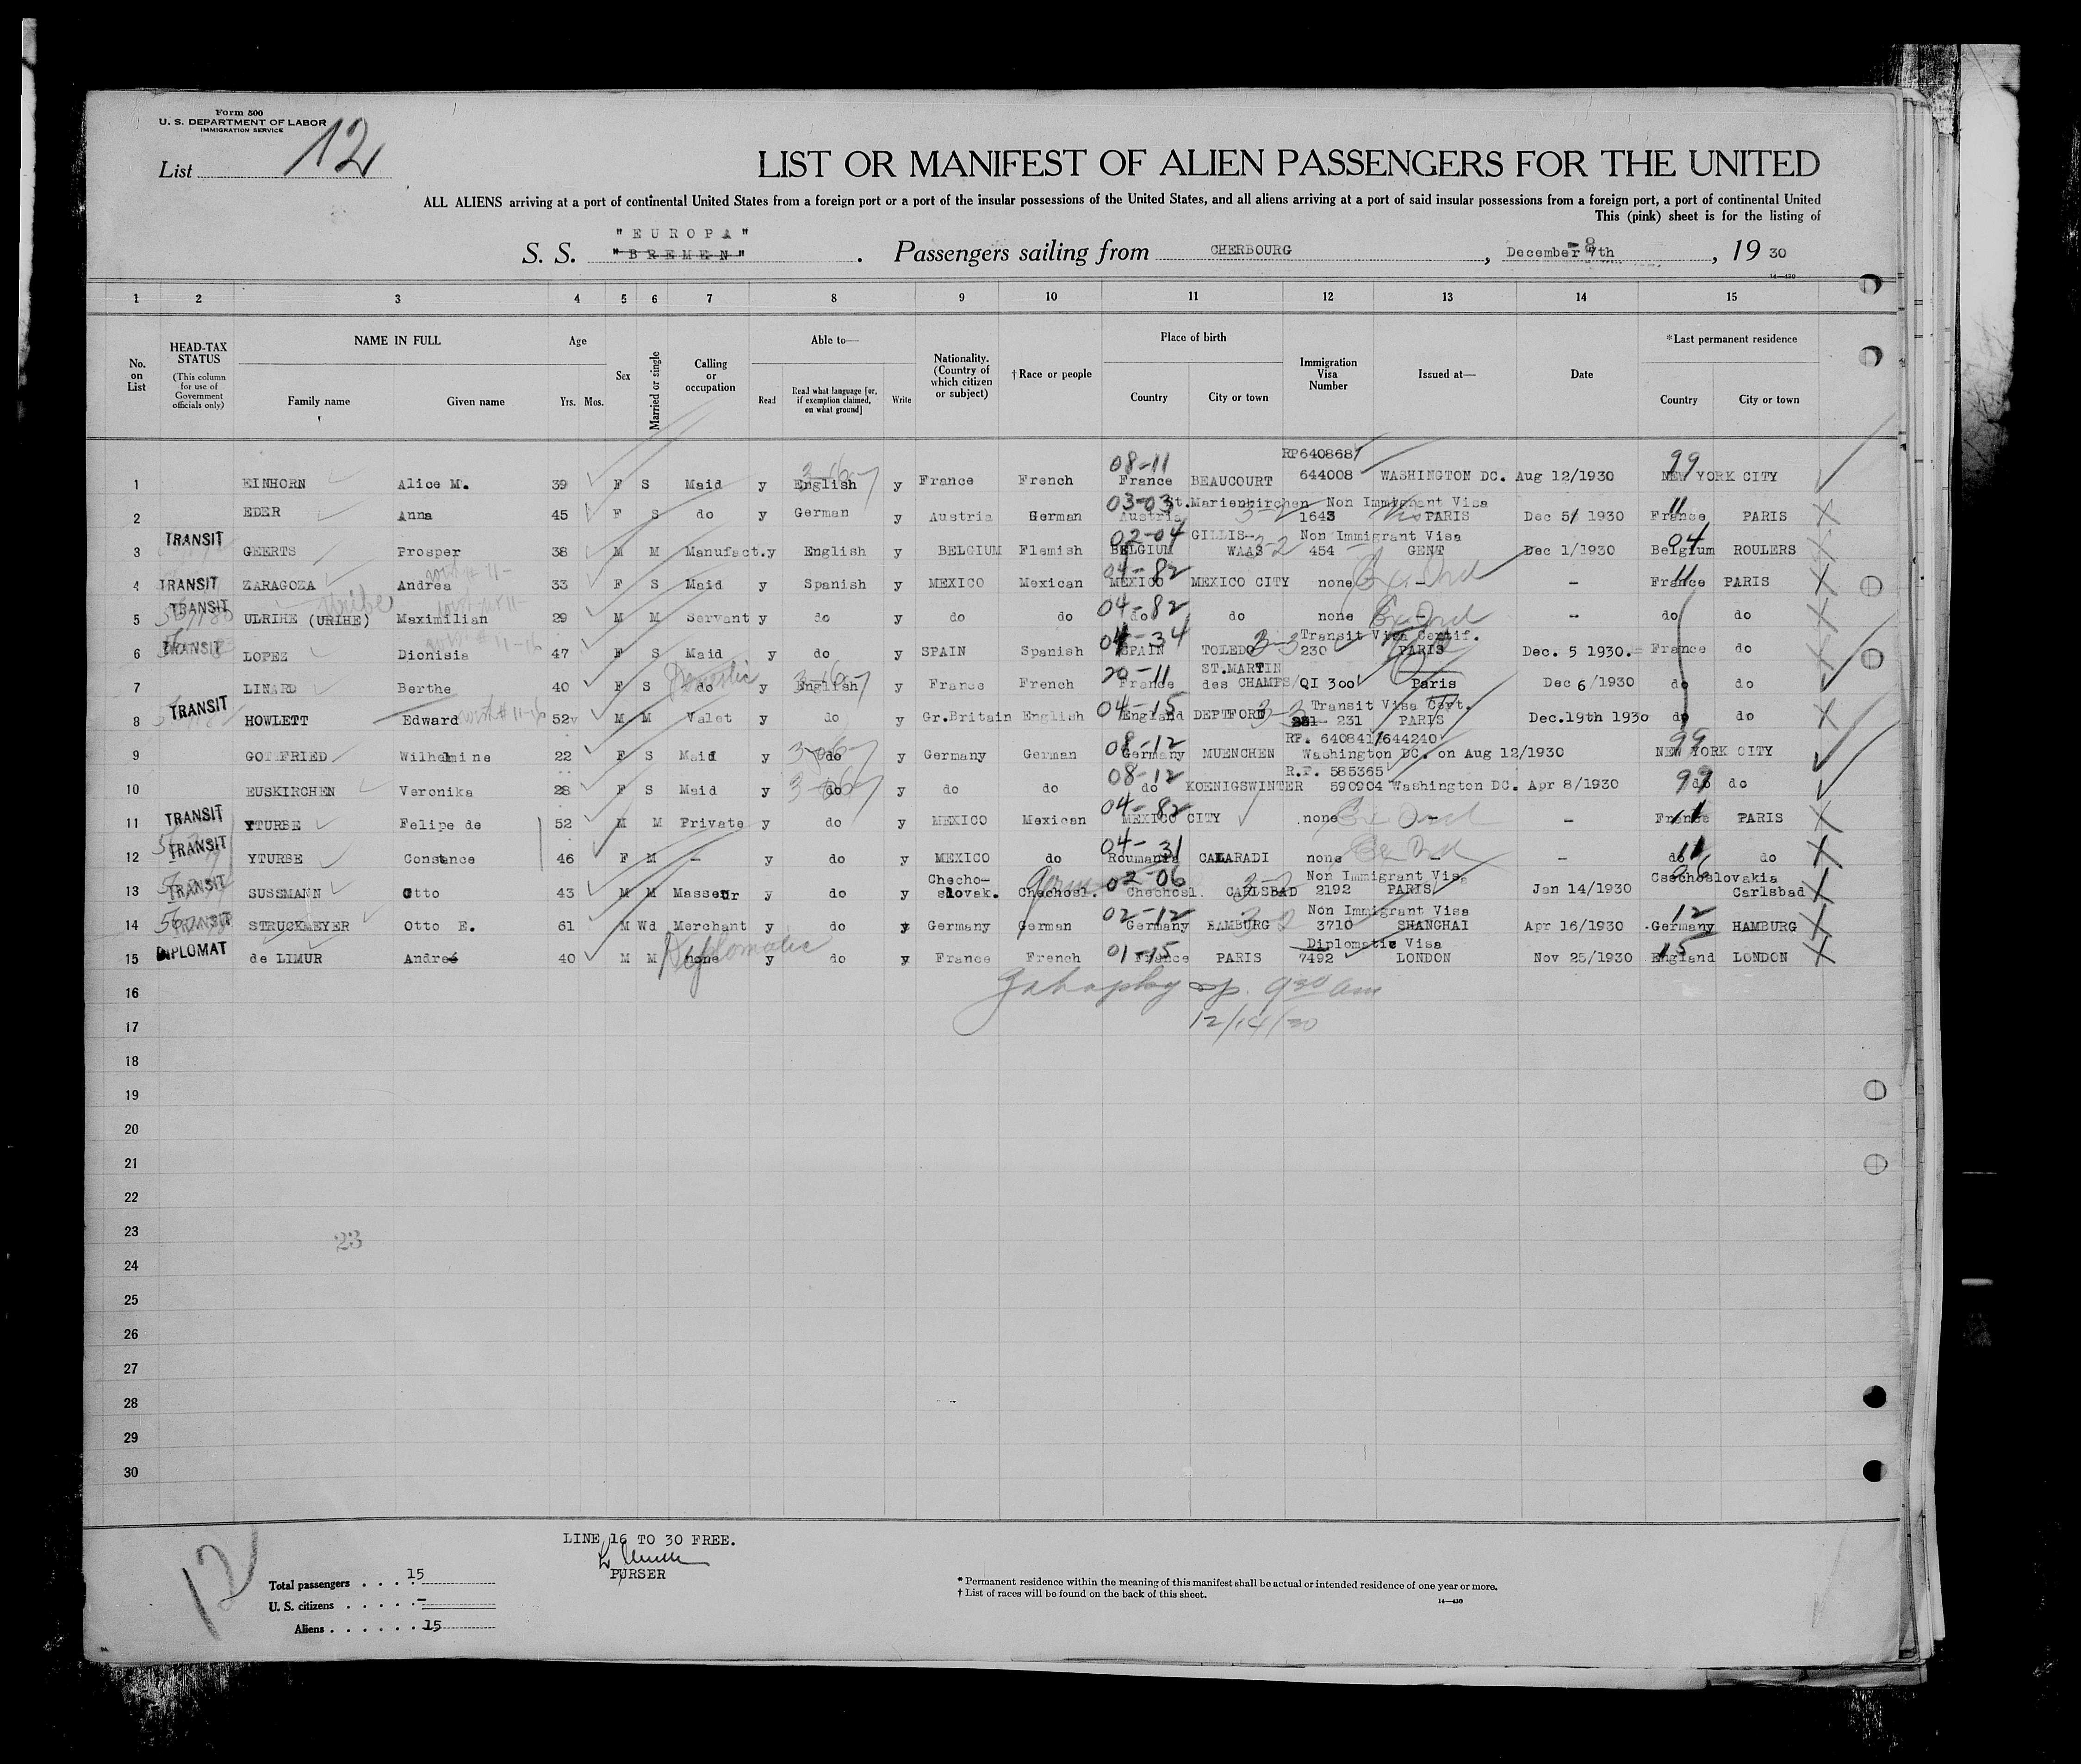 Form 500
U. S. DEPARTMENT OF LABOR
IMMIGRATION SERVICE
List 12
LIST OR MANIFEST OF ALIEN PASSENGERS FOR THE UNITED
ALL ALIENS arriving at a port of continental United States from a foreign port or a port of the insular possessions of the United States, and all aliens arriving at a port of said insular possessions from a foreign port, a port of continental United
This (pink) sheet is for the listing of
"EUROPA"
S. S. "BREMEN". Passengers sailing from CHERBOURG, December 7th 8, 19 30
14—430
1 2 3 4 5 6 7 8 9 10 11 12 13 14 15
No. on List
HEAD-TAX STATUS (This column for use of Government officials only)
NAME IN FULL
Family name Given name
Age
Yrs. Mos.
Sex
Married or single
Calling or occupation
Able to—
Read Read what language [or, if exemption claimed, on what ground] Write
Nationality. (Country of which citizen or subject)
† Race or people
Place of birth
Country City or town
Immigration Visa Number
Issued at—
Date
*Last permanent residence
Country City or town
08-11 RP640868 99
1 EINHORN Alice M. 39 F S Maid y English y France French France BEAUCOURT 644008 WASHINGTON DC. Aug 12/1930 NEW YORK CITY
03-03 St.Marienkirchen Non Immigrant Visa 11
2 EDER Anna 45 F S do y German y Austria German Austria 1643 PARIS Dec 5/ 1930 France PARIS
TRANSIT 02-04 GILLIS-- Non Immigrant Visa 04
3 GEERTS Prosper 38 M M Manufact. y English y BELGIUM Flemish BELGIUM WAAS 3-2 454 GENT Dec 1/1930 Belgium ROULERS
04-82 11
4 TRANSIT ZARAGOZA Andrea 33 F S Maid y Spanish y MEXICO Mexican MEXICO MEXICO CITY none - - France PARIS
TRANSIT Uribe 04-82
5 ULRIHE (URIHE) Maximilian 29 M M Servant y do y do do do do none - - do do
TRANSIT 04-34 Transit Visa Certif.
6 LOPEZ Dionisia 47 F S Maid y do y SPAIN Spanish SPAIN TOLEDO 3-3 230 PARIS Dec. 5 1930. France do
Domestic 20-11 ST.MARTIN
7 LINARD Berthe 40 F S do y English y France French France des CHAMPS/QI 300 Paris Dec 6/1930 do do
TRANSIT 04-15 Transit Visa Cert.
8 HOWLETT Edward 52 M M Valet y do y Gr.Britain English England DEPTFORD 3-3 231 PARIS Dec.19th 1930 do do
08-12 RP. 640841/644240 99
9 GOTTFRIED Wilhelmine 22 F S Maid y do y Germany German Germany MUENCHEN Washington DC. on Aug 12/1930 NEW YORK CITY
08-12 R.P. 585365 99
10 EUSKIRCHEN Veronika 28 F S Maid y do y do do do KOENIGSWINTER 590904 Washington DC. Apr 8/1930 do do
TRANSIT 04-82 11
11 YTURBE Felipe de 52 M M Private y do y MEXICO Mexican MEXICO CITY none - - France PARIS
TRANSIT 04-31 11
12 YTURBE Constance 46 F M - y do y MEXICO do Roumania CALARADI none - - do do
TRANSIT Checho- 02-06 Non Immigrant Visa 26 Csechoslovakia
13 SUSSMANN Otto 43 M M Masseur y do y slovak. Chechosl. Chechosl. CARLSBAD 2192 PARIS Jan 14/1930 Carlsbad
TRANSIT 02-12 Non Immigrant Visa 12
14 STRUCKMEYER Otto E. 61 M Wd Merchant y do y Germany German Germany HAMBURG 3-2 3710 SHANGHAI Apr 16/1930 Germany HAMBURG
DIPLOMAT Diplomatic 01-15 Diplomatic Visa 15
15 de LIMUR André 40 M M none y do y France French France PARIS 7492 LONDON Nov 25/1930 England LONDON
16 9 30 am
17 12/14/30
18
19
20
21
22
23 23
24
25
26
27
28
29
30
12
LINE 16 TO 30 FREE.
PURSER
Total passengers . . . . 15
U. S. citizens . . . . . -
Aliens . . . . . . . 15
* Permanent residence within the meaning of this manifest shall be actual or intended residence of one year or more.
† List of races will be found on the back of this sheet.
14—430